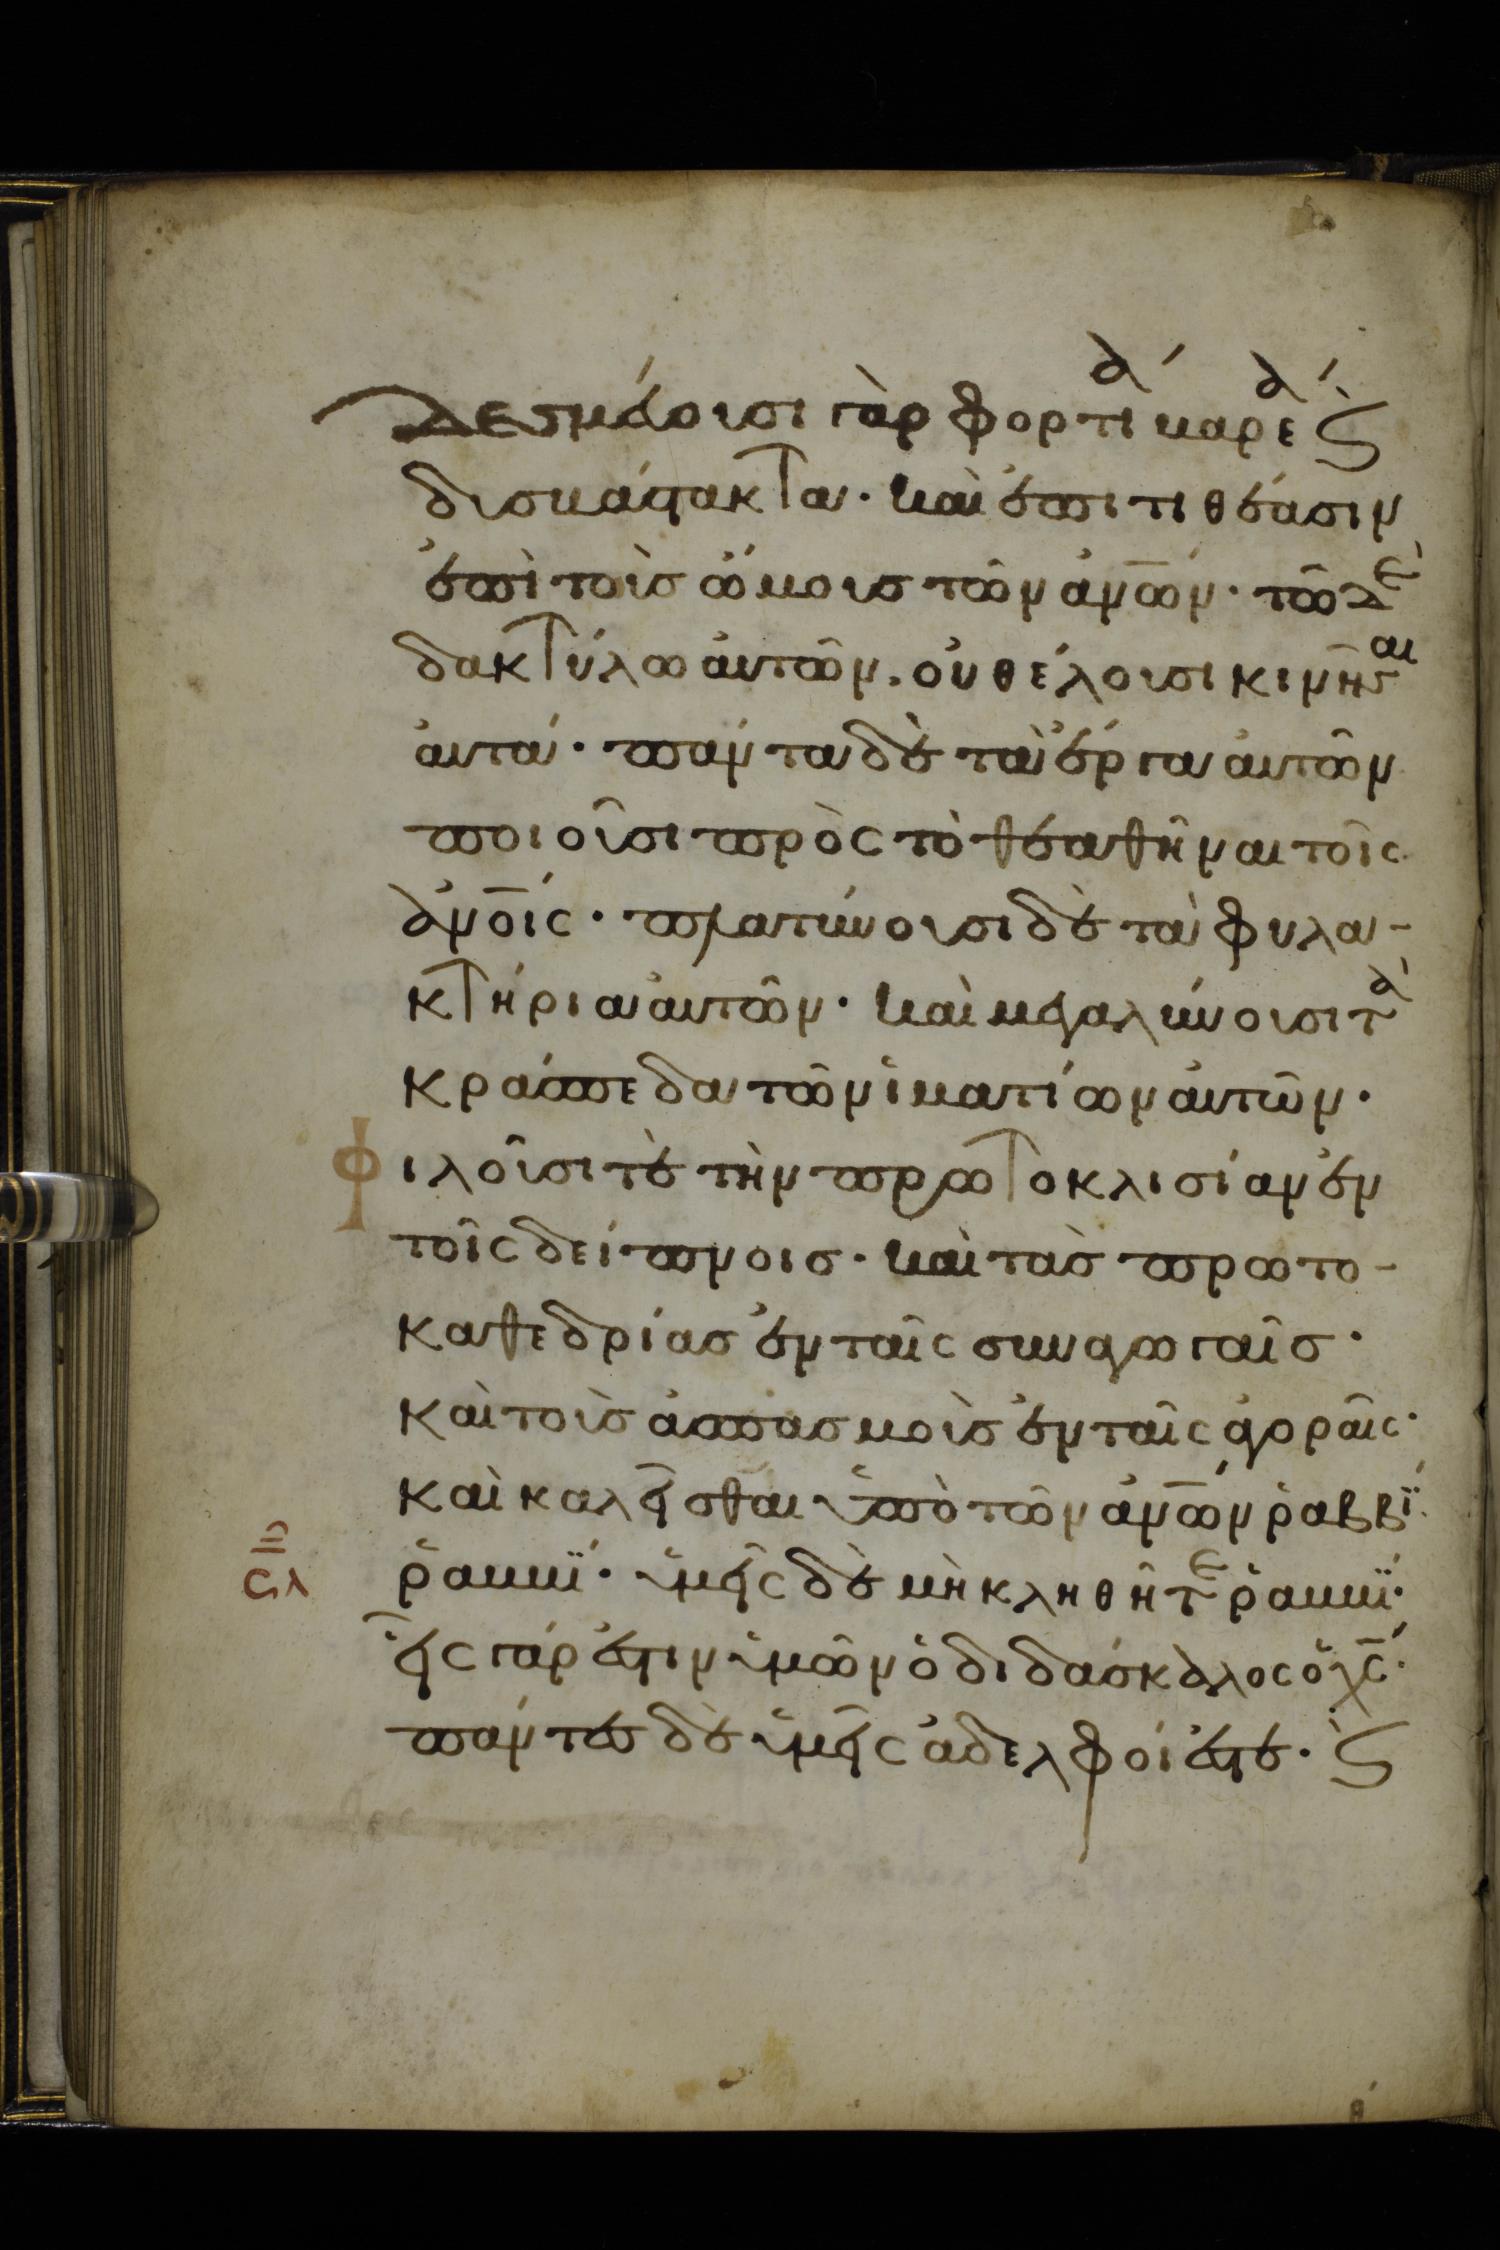 Δεσμέουσι γὰρ φορτί̀α βαρέα ϗ
δυσβάστακτα· καὶ ἐπιτιθέασιν
ἐπὶ τοὺς ὤμους τῶν ἀν̅ων· τῶ δὲ
δακτύλω αὐτῶν. οὐ θέλουσι κινῆσαι
αὐτά· πάντα δὲ τὰ ἔργα αὐτῶν
ποιοῦσι πρὸς τὸ θεαθῆναι τοῖς
ἀν̅οις· πλατύνουσι δὲ τὰ φυλα-
κτήρια αὐτῶν· καὶ μεγαλύνουσι τὰ
κράσπεδα τῶν ἱματίων αὐτῶν·
φιλοῦσί τὲ τὴν πρωτοκλισίαν ἐν
τοῖς δείπνοις· καὶ τὰς πρωτο-
καθεδρίας ἐν ταῖς συναγωγαῖς·
καὶ τοὺς ἀσπασμοὺς ἐν ταῖς ἀγοραῖς·
καὶ καλεῖσθαι ὑπὸ τῶν ἀν̅ων ῥαββί·
ϛλ ῥαββί· ὑμεῖς δὲ μὴ κληθῆτε ῥαββί·
εἷς γάρ ἐστιν ὑμῶν ὁ διδάσκαλος ὁ χ̅ς·
πάντες δὲ ὑμεῖς ἀδελφοί ἐστε· ϗ